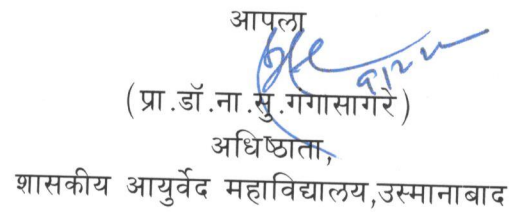 आपला
(प्रा.डॉ.ना.सु.गंगासागरे)
अधिष्ठाता,
शासकीय आयुर्वेद महाविद्यालय,उस्मानाबाद